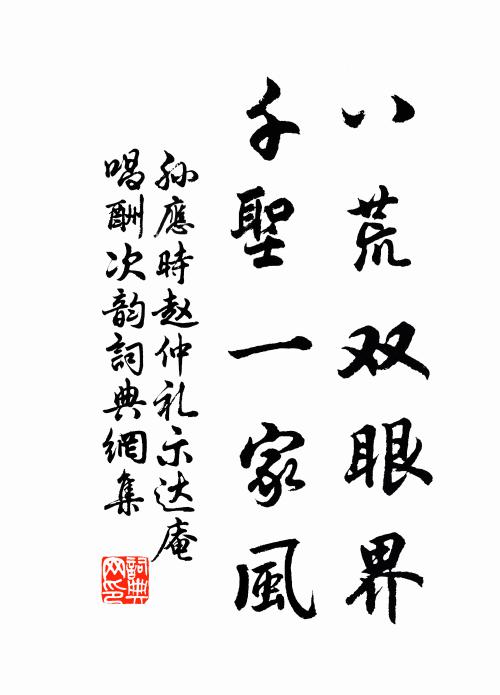 八荒双眼界
千聖一家風
孫應時赵仲礼示达庵
唱酬次韵詞典網集
詞典网印